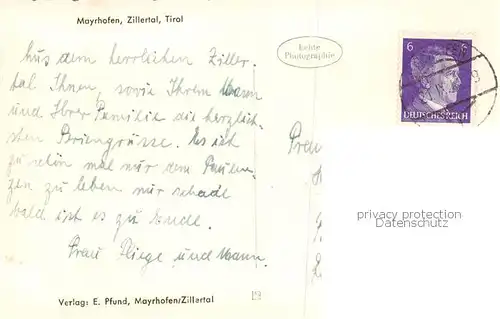 Mayrhofen, Zillertal, Tirol
Echte
Photographie
6 6
DEUTSCHES REICH
Aus dem herrlichen Ziller-
tal Ihnen, sowie Ihrem Mann
und Ihrer Familie die herzlich-
sten Feriengrüsse. Es ist
zu schön mal nur dem
zu leben nur schade
bald ist es zu Ende.
Frau und Mann.
privacy protection
Datenschutz
Verlag: E. Pfund, Mayrhofen/Zillertal